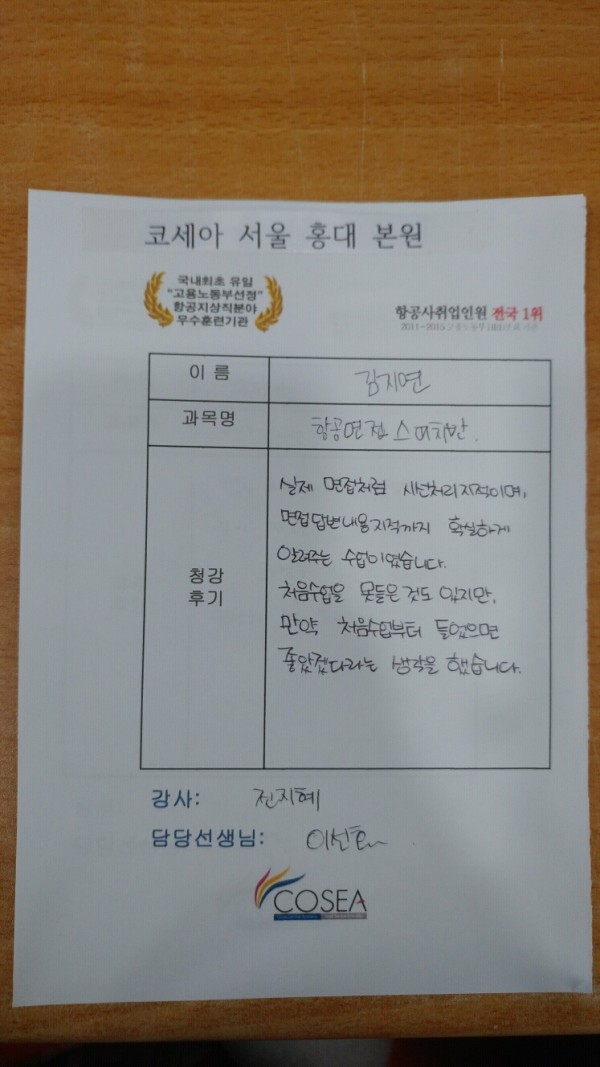 코세아 서울 홍대 본원
국내최초 유일
"고용노동부선정"
항공지상직분야
우수훈련기관
항공사취업인원 전국 1위
2011~2015 고용노동부
이 름
김지연
과목명
항공면접스피치반.
청강
후기
실제 면접처럼 시선처리지적이며,
면접답변내용지적까지 확실하게
알려주는 수업이였습니다.
처음수업을 못들은것도 있지만,
만약 처음수업부터 들었으면
좋았겠다라는 생각을 했습니다.
강사: 전지혜
담당선생님: 이선
COSEA